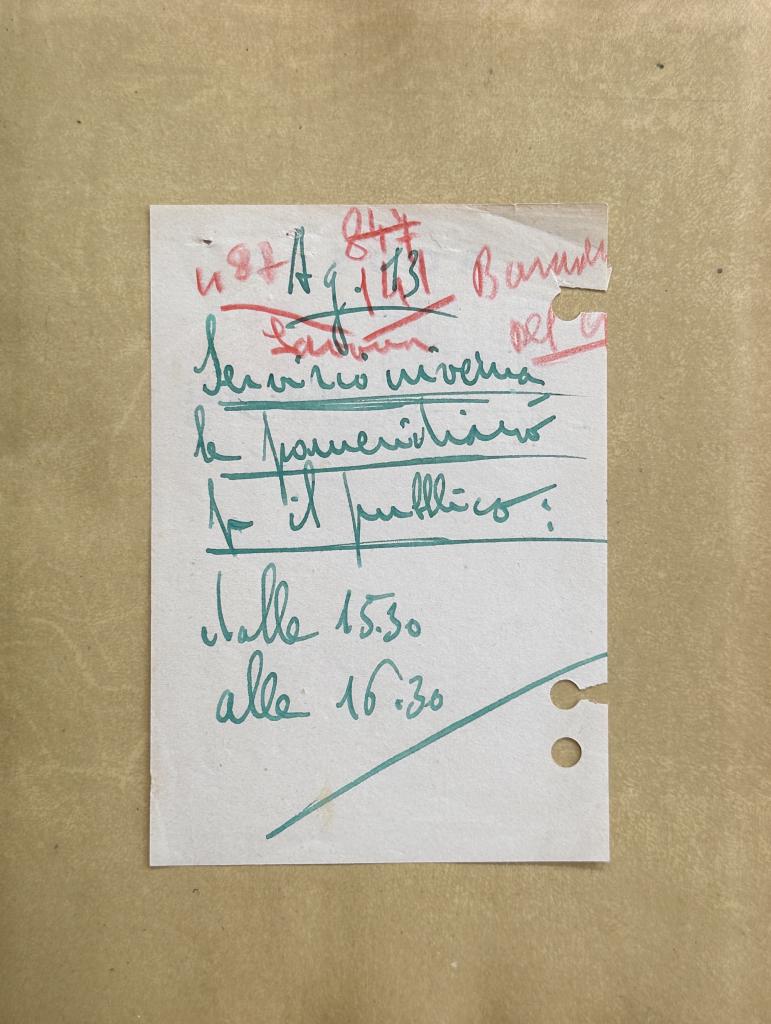 847
n 87 Ag. 13 141
del
Servizio inverna
le pomeridiano
per il pubblico:
dalle 15.30
alle 16.30